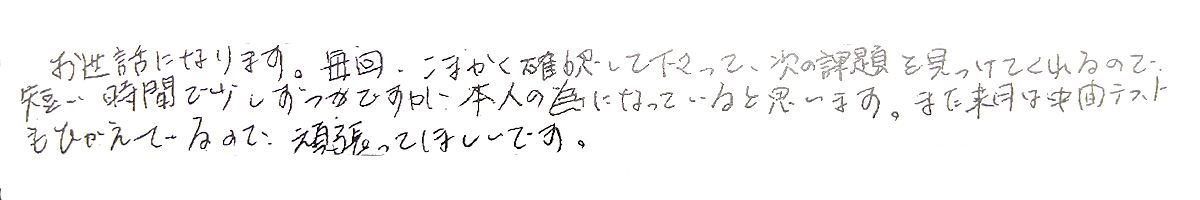 お世話になります。毎回、こまかく確認して下さって、次の課題を見つけてくれるので、
短い時間で少しずつかですが、本人の為になっていると思います。また来月は中間テスト
もひかえているので、頑張ってほしいです。